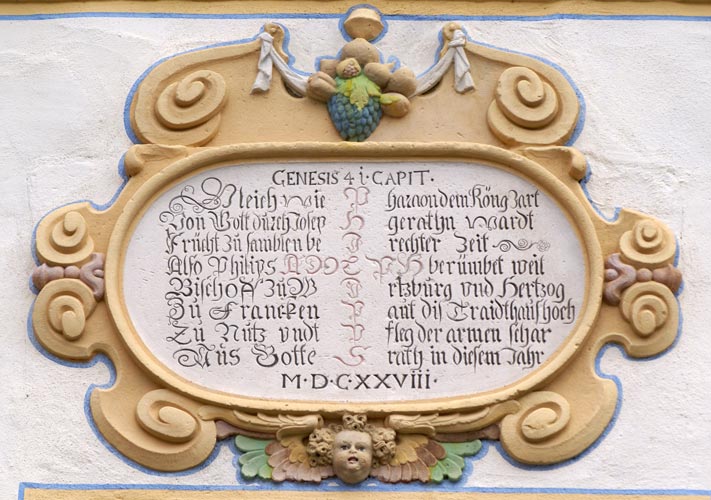 GENESIS 4i. CAPIT.
Gleich wie Pharaon dem König Zart
Von Gott durch Josep gerathn wardt
Frücht Zu samblen be rechter Zeit
Also Philips ADOLPH berümbet weit
Bischof Zu Wirtzburg vnd Hertzog
Zu Francken auf diß Traidthauß hoch
Zu Nutz vndt Pfleg der armen schar
Aus Gottes rath in diesem Jahr
M·D·C·XXVIII·